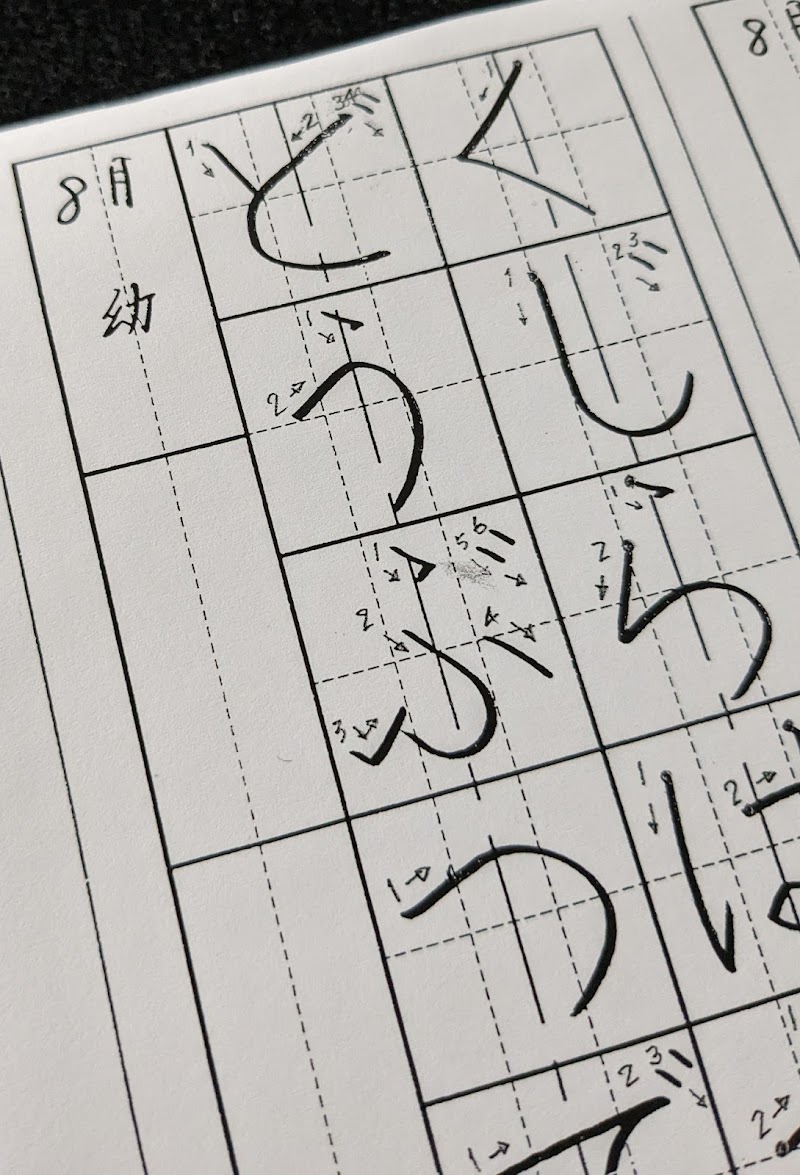 8月
くじらは
どうぶつで
8月 幼